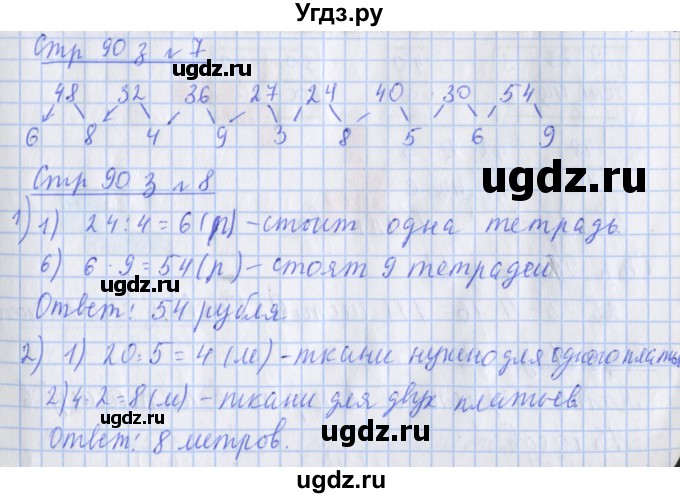 Угдз.ру
Стр 90 з №7
ugdz.ru
48 32 36 27 24 40 30 54
6 8 4 9 3 8 5 6 9
ugdz.ru
Стр 90 з №8
ugdz.ru
1) 1) 24:4=6(р) – стоит одна тетрадь
6) 6·9=54(р) – стоят 9 тетрадей
ugdz.ru
Ответ: 54 рубля.
ugdz.ru
2) 1) 20:5=4(м) – ткани нужно для одного платья
2) 4·2=8(м) – ткани для двух платьев
ugdz.ru
Ответ: 8 метров.
ugdz.ru
ugdz.ru